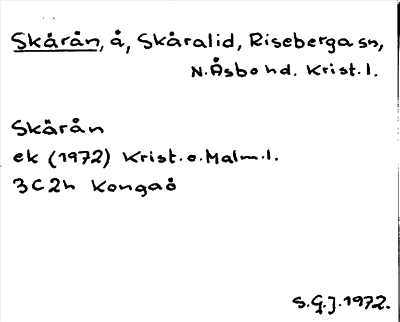 Skårån, å, Skåralid, Riseberga sn,
N. Åsbo hd. Krist. l.
Skärån
ek (1972) Krist. o. Malm. l.
3C2h Kongaö
S.G.J. 1972.